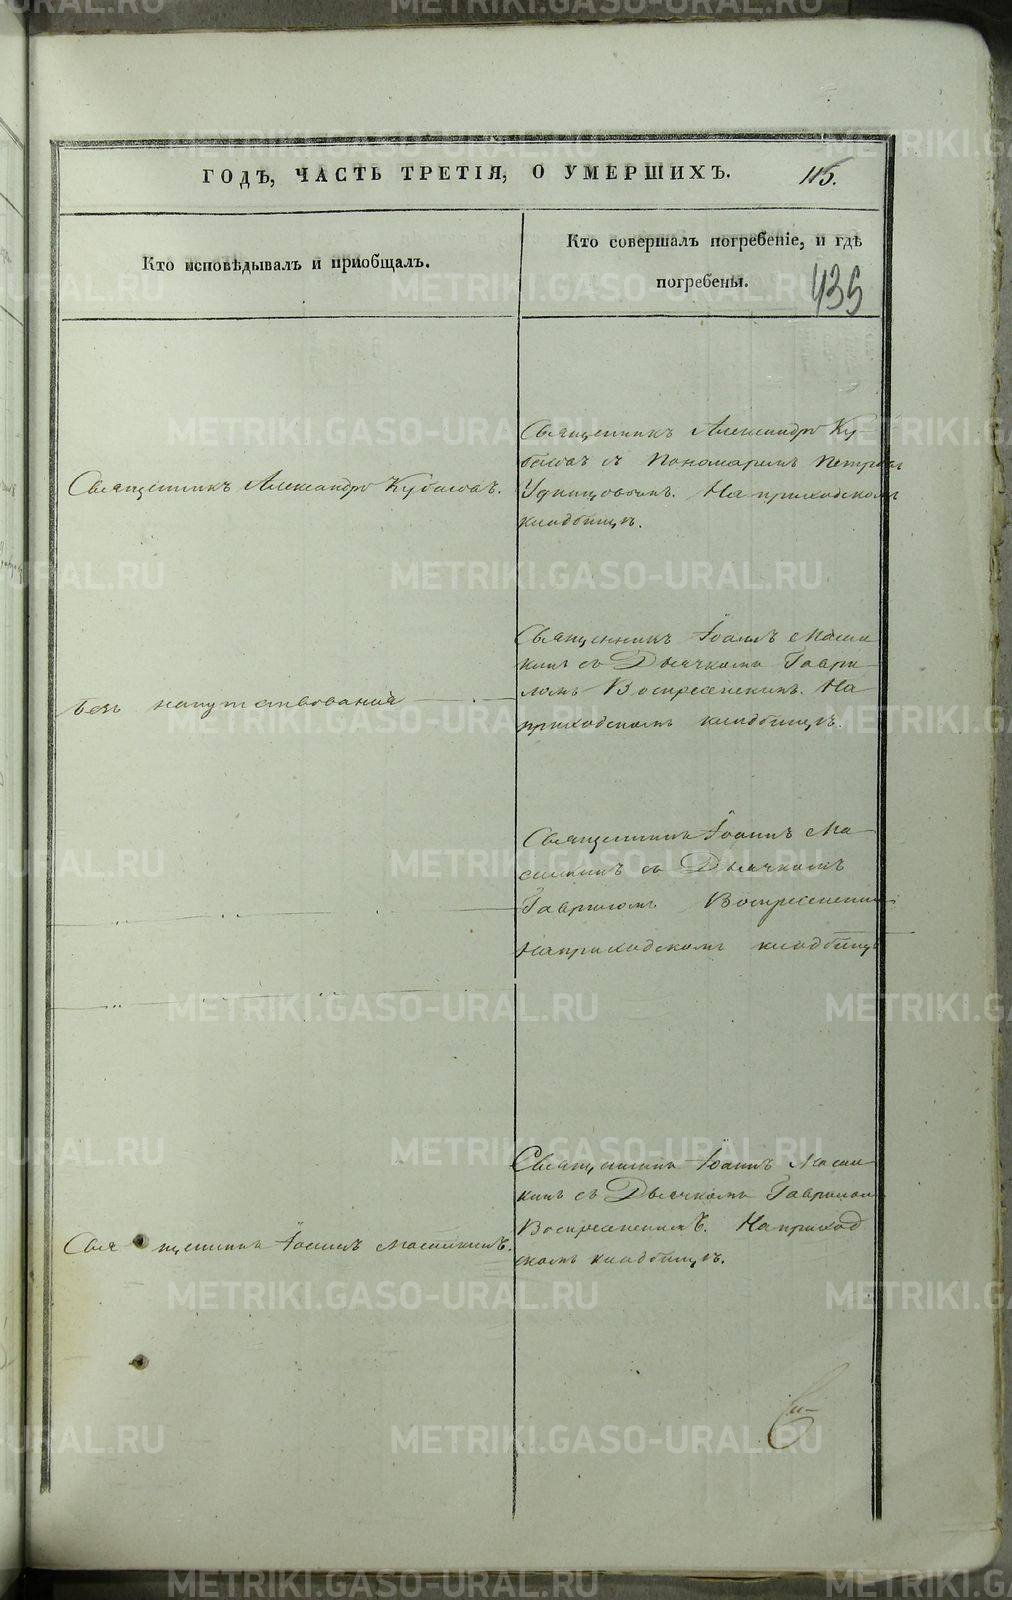 ГОДЪ, ЧАСТЬ ТРЕТІЯ, О УМЕРШИХЪ. 115.
Кто исповѣдывалъ и пріобщалъ.
Кто совершалъ погребеніе, и гдѣ
погребены.
435
Священникъ Александръ Кубасовъ.
Священникъ Александръ Ку-
басовъ съ Пономаремъ Петромъ
На приходскомъ
кладбищѣ.
безъ напутствованія
Священникъ Іоаннъ
съ Дьячкомъ Гаври-
ломъ Воскресенскимъ. На
приходскомъ кладбищѣ.
Священникъ Іоаннъ Ма-
съ Дьячкомъ
Гавриломъ Воскресенским
На приходскомъ кладбищѣ
Священникъ Іоаннъ
Священникъ Іоаннъ
съ Дьячкомъ Гаврилом
Воскресенскимъ. На приход
скомъ кладбищѣ.
METRIKI.GASO-URAL.RU